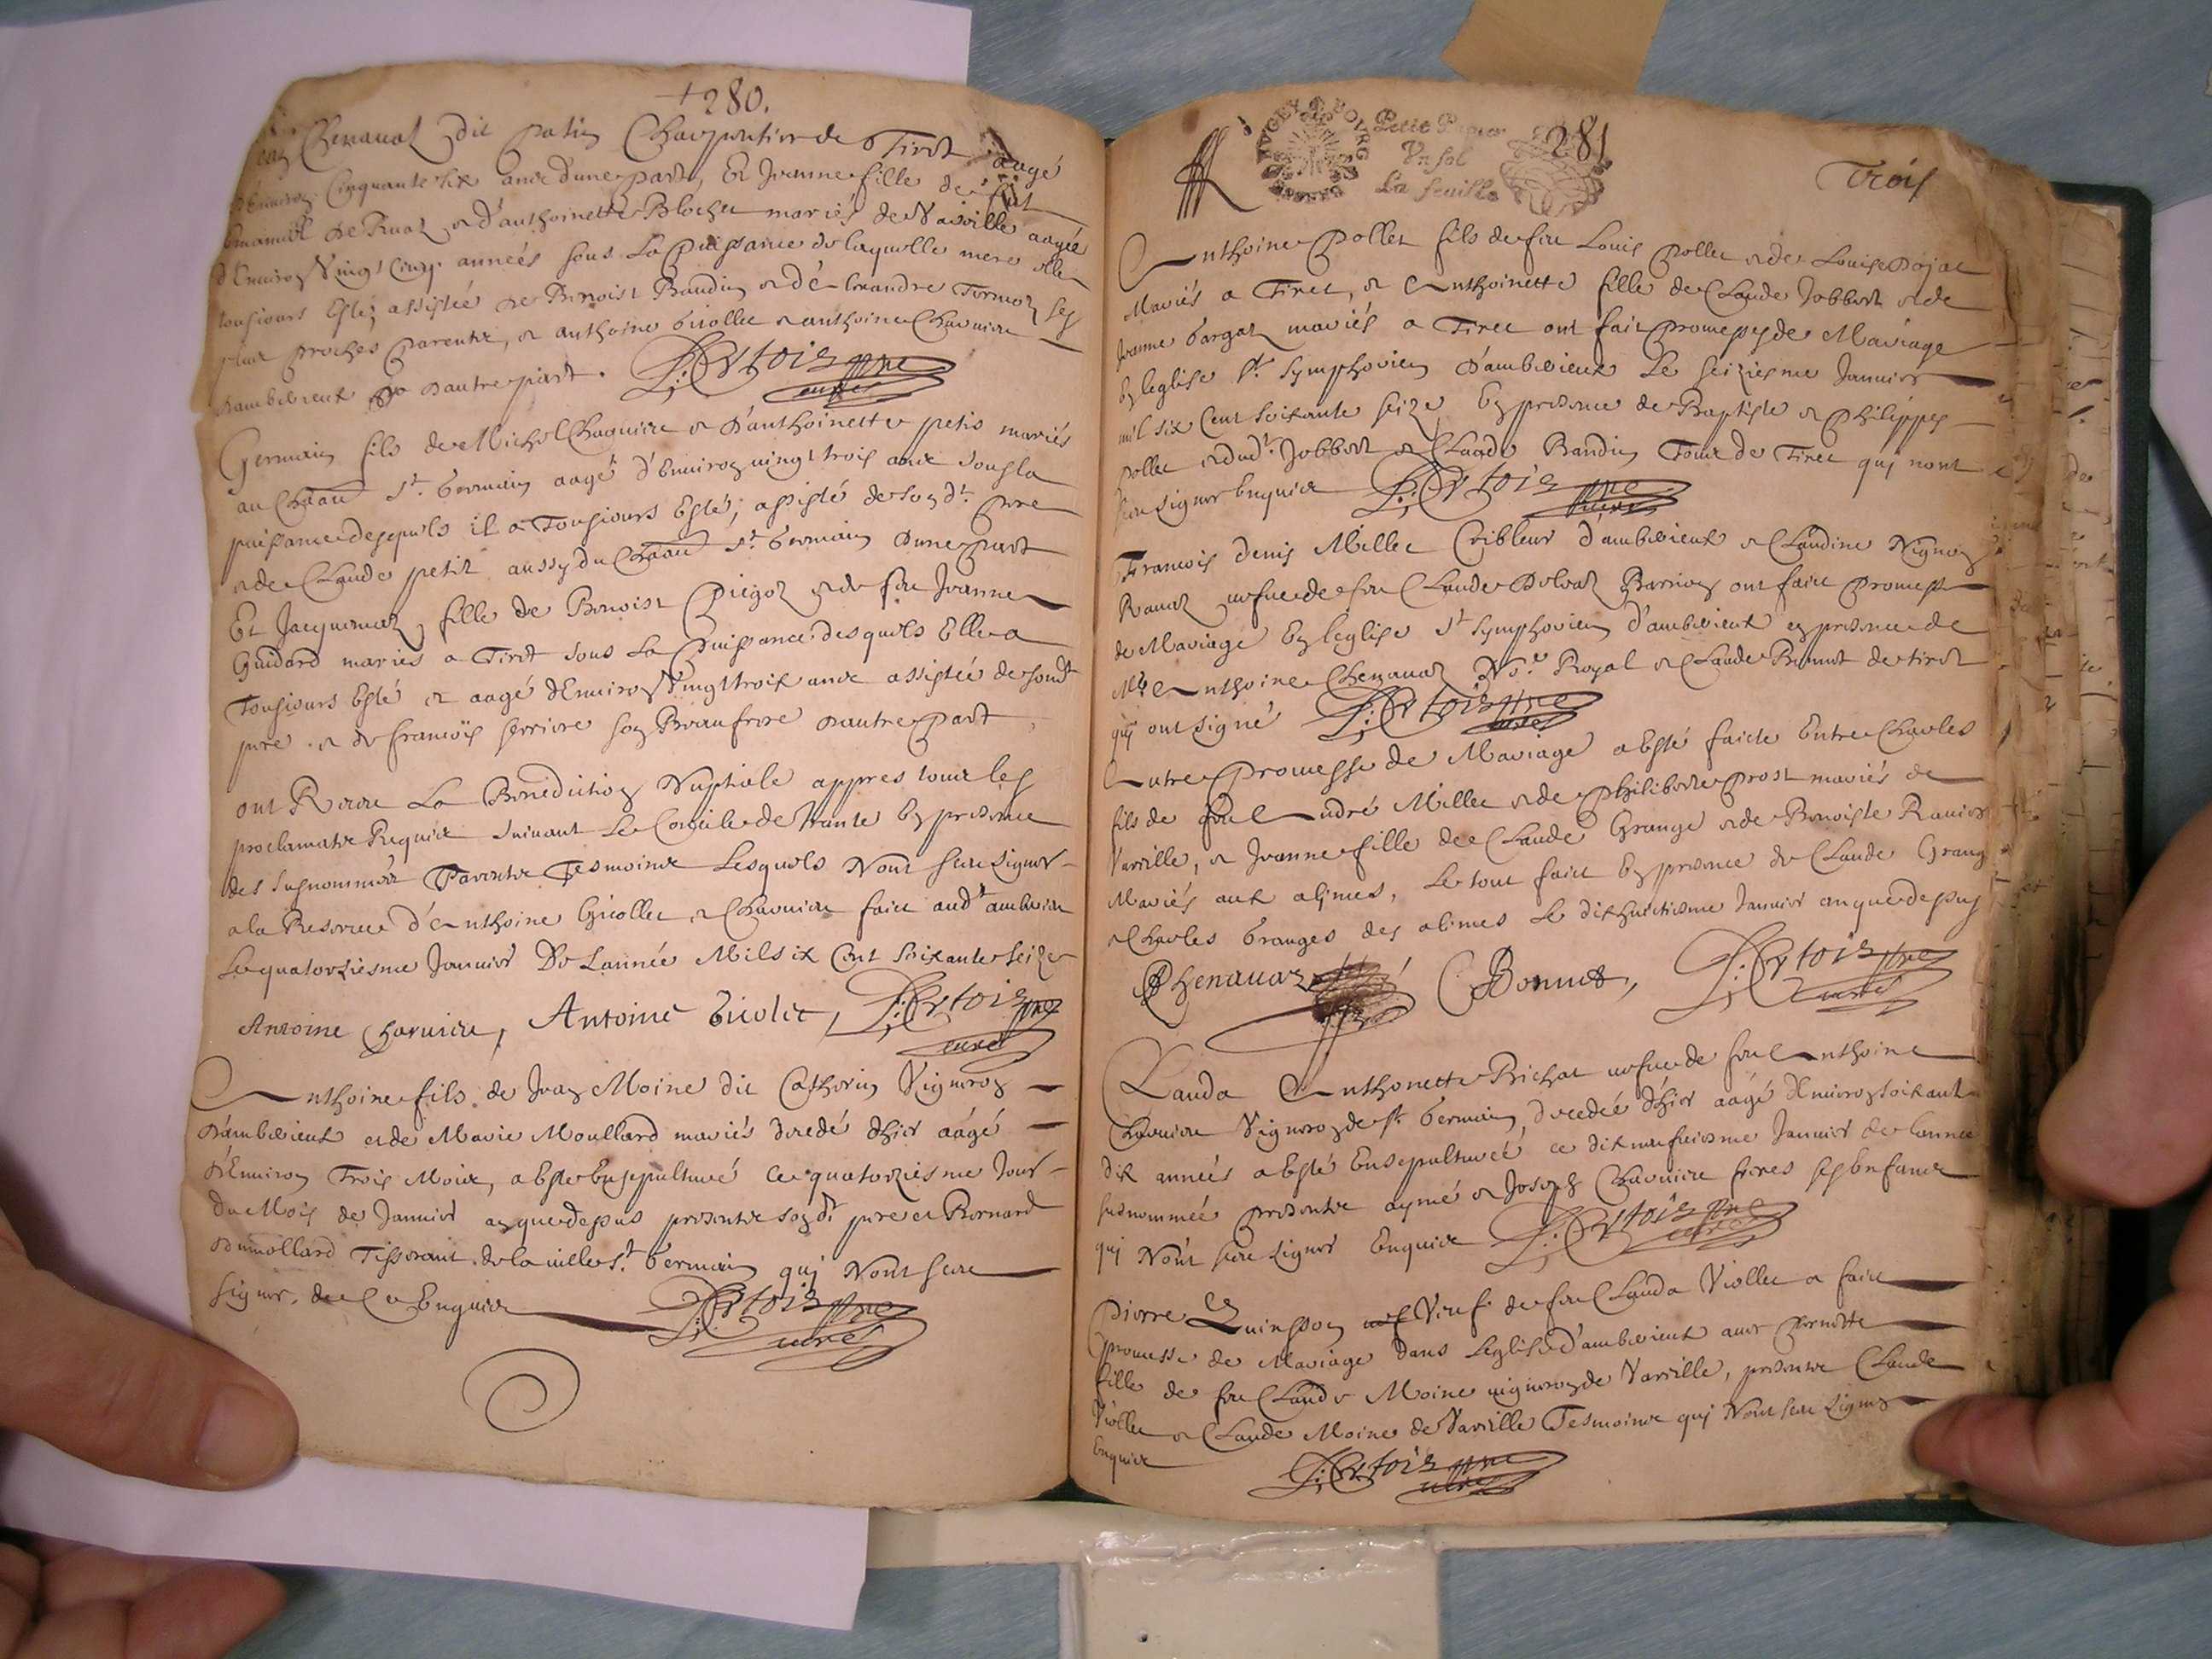 280.
Chenaual dit patin Charpentier de Tiret aagé
d'Enuiron Cinquante six ans d'une part, Et Jeanne fille de fut
Emanuel de Ruaz & d'anthoinette Blochet mariés de Vareille aagée
d'Enuiron Vingt Cinq années sous La puissance de laquelle mere elle
tousiours Esté; assistée de Benoist Baudin & d'Alexandre Termoz ses
plus proches parents, & anthoine Griollet & anthoine Charuiere
d'ambeirieux d'autre part. curé
Germain fils de Michel Charuiere & d'anthoinette petit mariés
au Chãau St. Germain aagé d'Enuiron uingt trois ans sous la
puissance desquels il a Tousiours Esté, assisté de son dt. pere
& de Claude petit aussy du Chãau St. Germain d'une part
Et Jacquemaz fille de Benoist Pigoz & de feu Jeanne
Guidard mariés a Tiret sous La puissance desquels Elle a
Tousiours Esté & aagé d'Enuiron Vingt trois ans assistée de son dt
pere & de francois serriere son Beaufrere d'autre part
ont Receu La Benediction Nuptiale appres tous les
proclamats Requis suiuant Le Concile de trante En presence
des susnommés Parents Tesmoins Lesquels N'ont sceu signer
a la Reserue d'Anthoine Griollet & Charuiere faict aud. ambeirieux
Le quatorziesme Januier De L'année Mil six Cent soixante seize
Antoine Charuiere, Antoine Griolet, curé
Anthoine fils de Jean Moine dit Catherin Vigneron
d'ambeirieux et de Marie Moullard mariés decedé d'hier aagé
d'Enuiron Trois Mois, a Esté Ensepulturé Le quatorziesme Jour
du Mois de Januier an que dessus presents son dt pere et Bernard
Dumollard Tisserant de la uille St. Germain qui N'ont sceu
signer, de Ce Enquis curé
Petit Papier
Vn sol
La feuille
281
Trois
Anthoine Pollet fils de feu Louis Pollet & de Louise Dojat
Mariés a Tiret, & Anthoinette fille de Claude Jobbert & de
Jeanne Gargaz mariés a Tiret ont fait promesses de Mariage
En leglise St. Symphorien d'ambeirieux Le seiziesme Januier
mil six Cent soixante seize En presence de Baptiste & Philippes
Pollet & dud. Jobbert & Claude Baudin Tous de Tiret qui n'ont
sceu signer Enquis curé
Francois denis Millet Cribleur d'ambeirieux & Claudine Vignoz
Ranaz uefue de feu Claude Deluaz Barrioz ont faict promesse
de Mariage En leglise St Symphorien d'ambeirieux en presence de
Me Anthoine Chenauaz Nore. Royal & Claude Bonnet de tiret
qui ont signé curé
Autre Promesse de Mariage a Esté faicte Entre Charles
fils de feu André Millet & de Philiberte prost mariés de
Vareille, & Jeanne fille de Claude Grange & de Benoiste Rauier
Mariés aux alimes, Le tout faict En presence de Claude Grange
& Charles Granges des alimes Le dixhuictiesme Januier an que dessus
Chenauaz Bonnet, curé
Lauda Anthonette Brichat uefue de feu Anthoine
Charuiere Vigneron de st. Germain, decedée d'hier aagé d'Enuiron soixante
dix années a Esté Ensepulturée ce dixneufuiesme Januier de lannée
susnommée presents aymé & Joseph Charuiere freres ses Enfants
qui N'ont sceu signer Enquis curé
Pierre Quinsson Veuf de feu Clauda Viollet a faict
promesse de Mariage dans L'Eglise d'ambeirieux auec Pernette
fille de feu Claude Moine uigneron de Vareille, presents Claude
Viollet & Claude Moine de Vareille Tesmoins qui N'ont sceu signer
Enquis curé